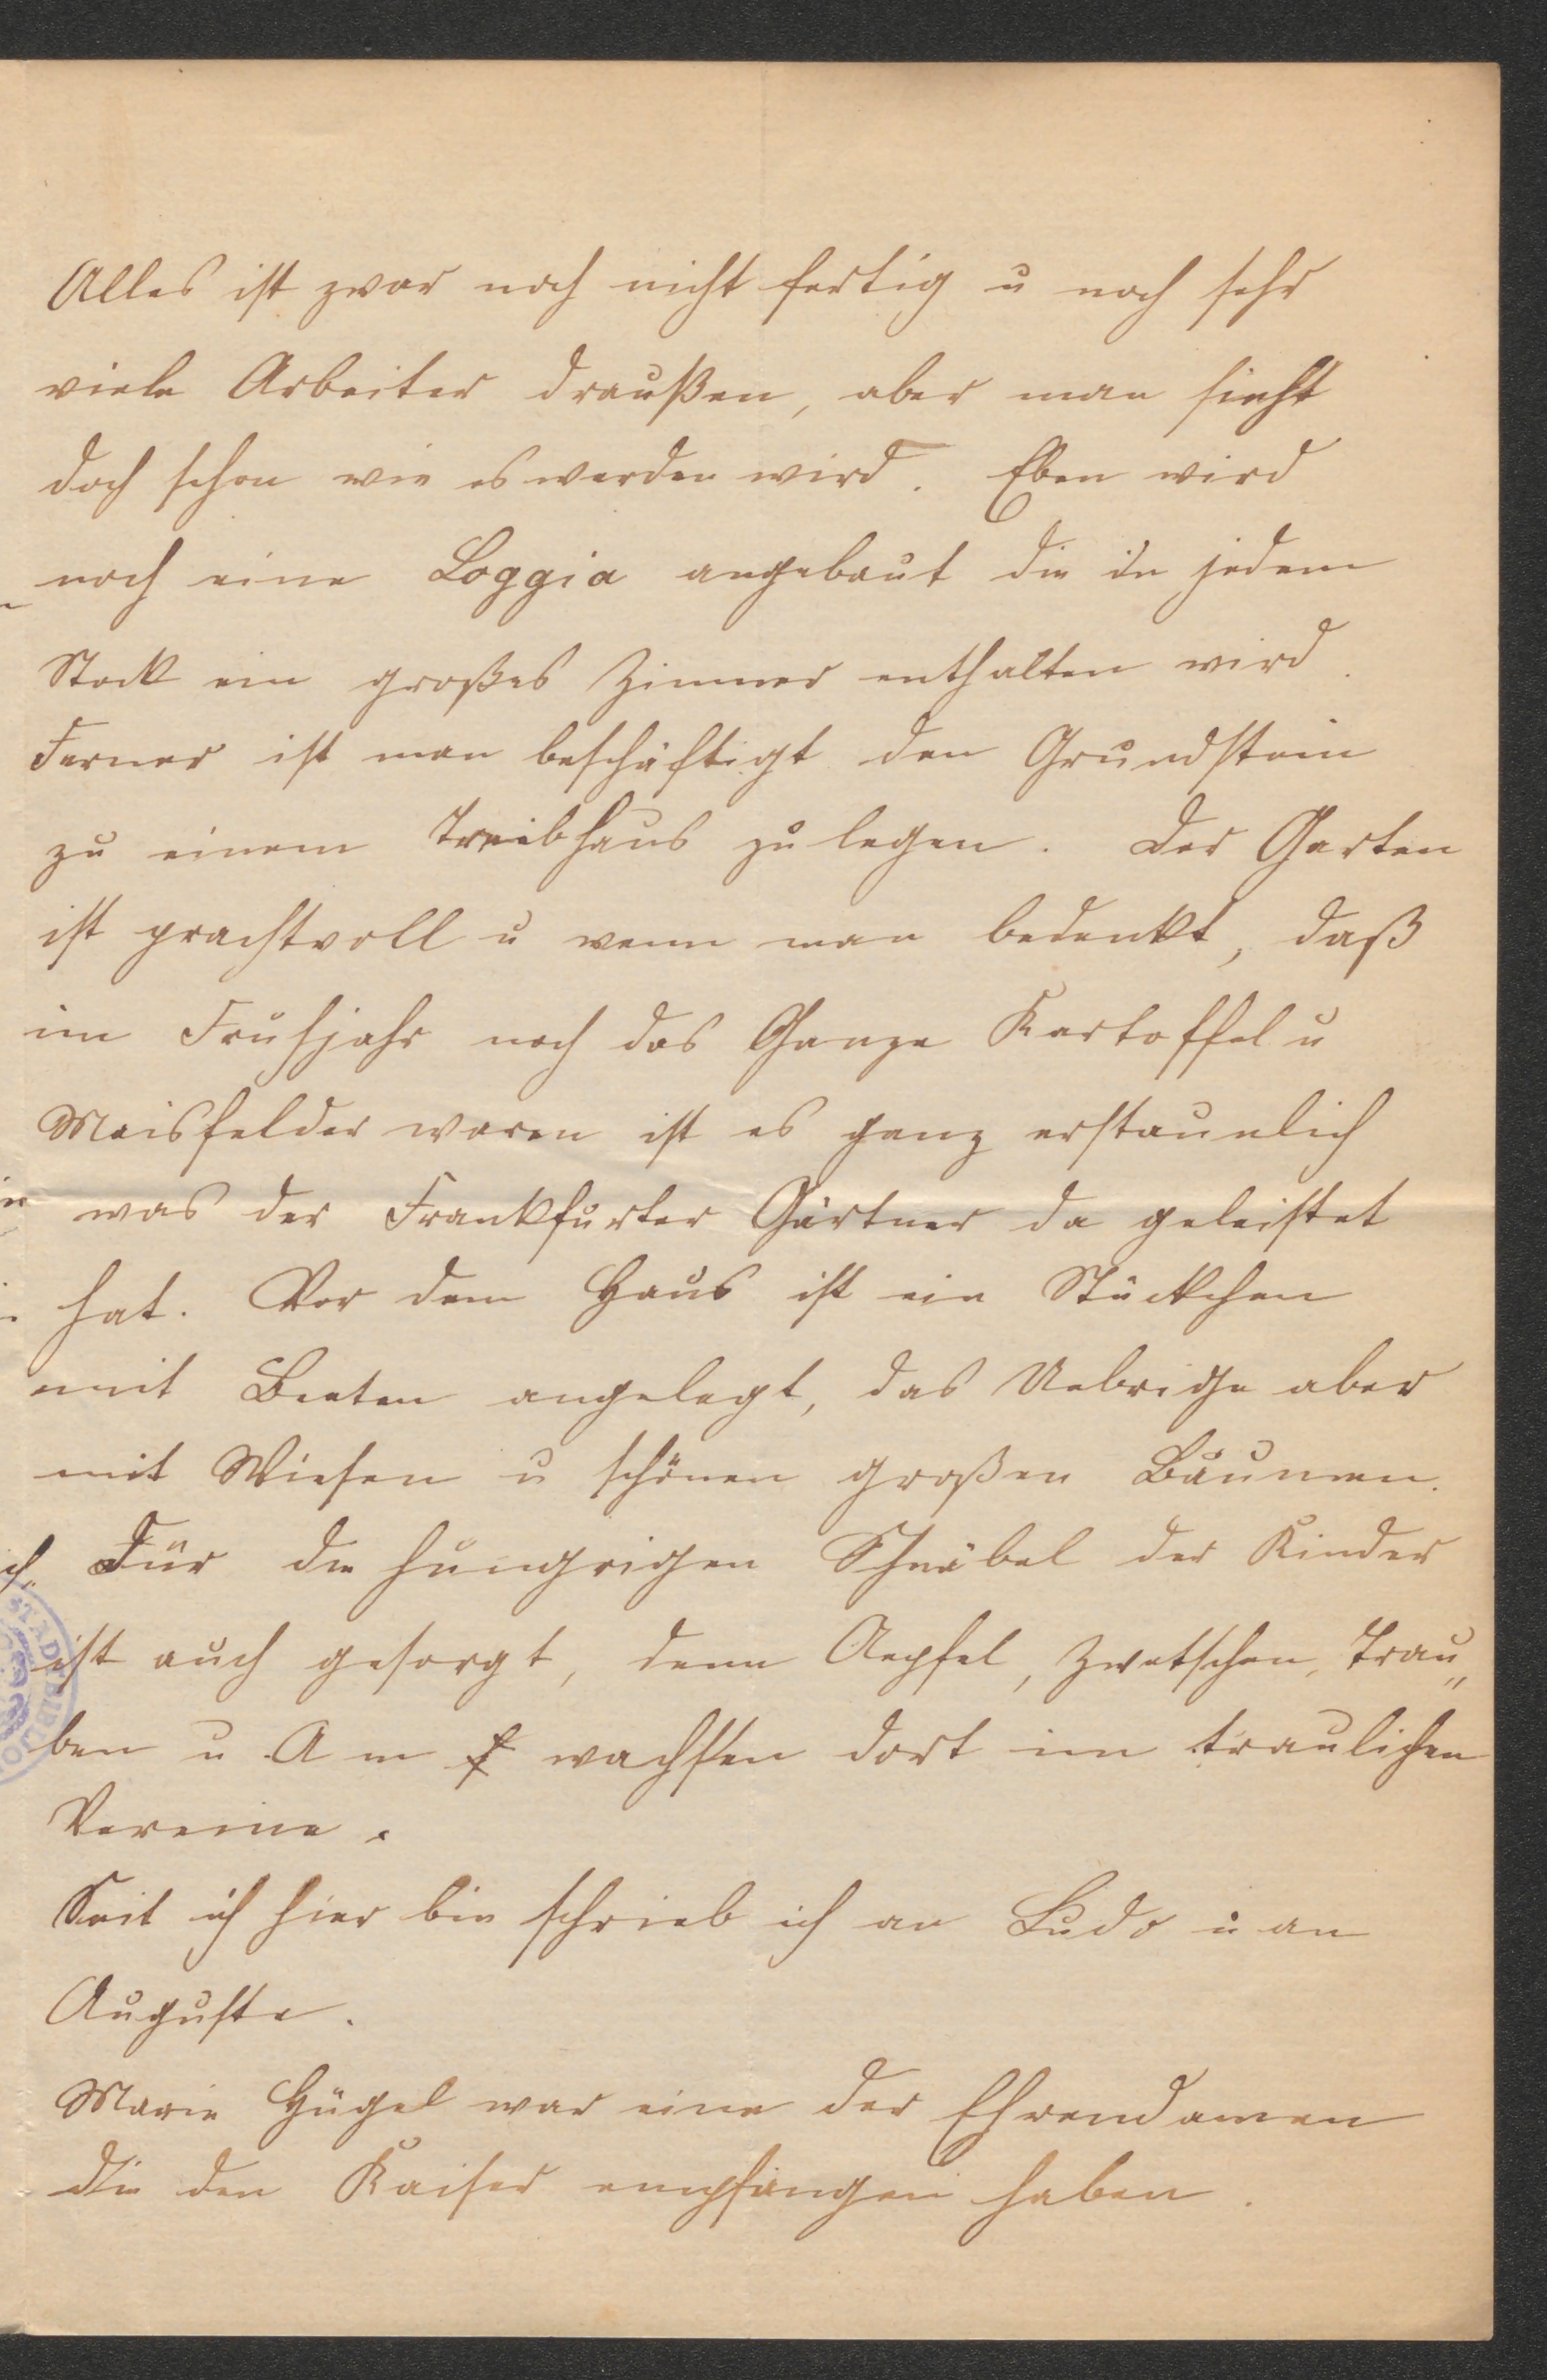 Alles ist zwar noch nicht fertig u noch sehr
viele Arbeiter draußen, aber man sieht
doch schon wie es werden wird. Eben wird
noch eine Loggia angebaut die in jedem
Stock ein großes Zimmer enthalten wird.
Ferner ist man beschäftigt den Grundstein
zu einem Treibhaus zu legen. Der Garten
ist prachtvoll u wenn man bedenkt, daß
im Frühjahr noch das Ganze Kartoffel u
Maisfelder waren ist es ganz erstaunlich
was der Frankfurter Gärtner da geleistet
hat. Vor dem Haus ist ein Stückchen
mit Beeten angelegt, das Uebrige aber
mit Wiesen u schönen großen Bäumen.
Für die hungrigen Schnäbel der Kinder
ist auch gesorgt, denn Aepfel, Zwetschen, Trau„
ben u A m wachsen dort im traulichen
Vereine.
Seit ich hier bin schrieb ich an Ludo u an
Auguste.
Marie Hügel war eine der Ehrendamen
die den Kaiser empfangen haben.